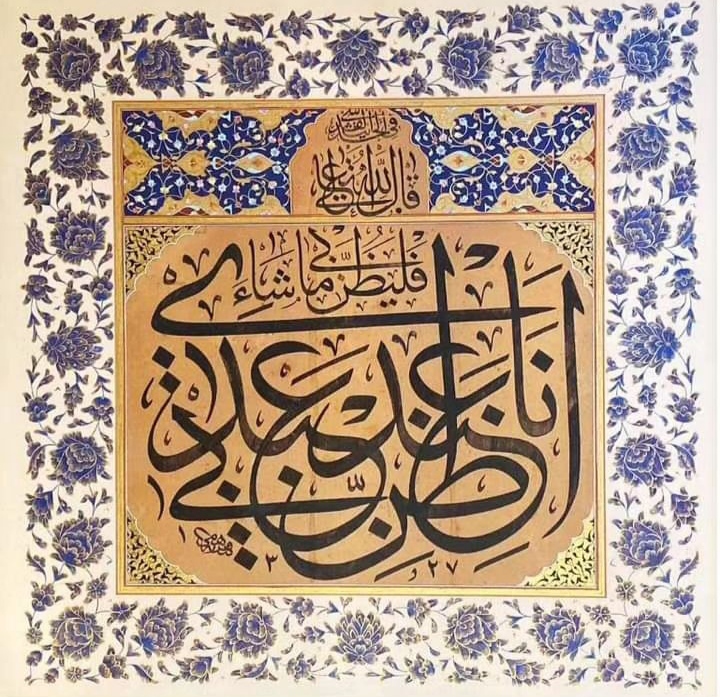 في الحديث القدسي
قال الله تعالى
انا عند ظن عبدي بي
فليظن بي ما شاء
١٣٢٧